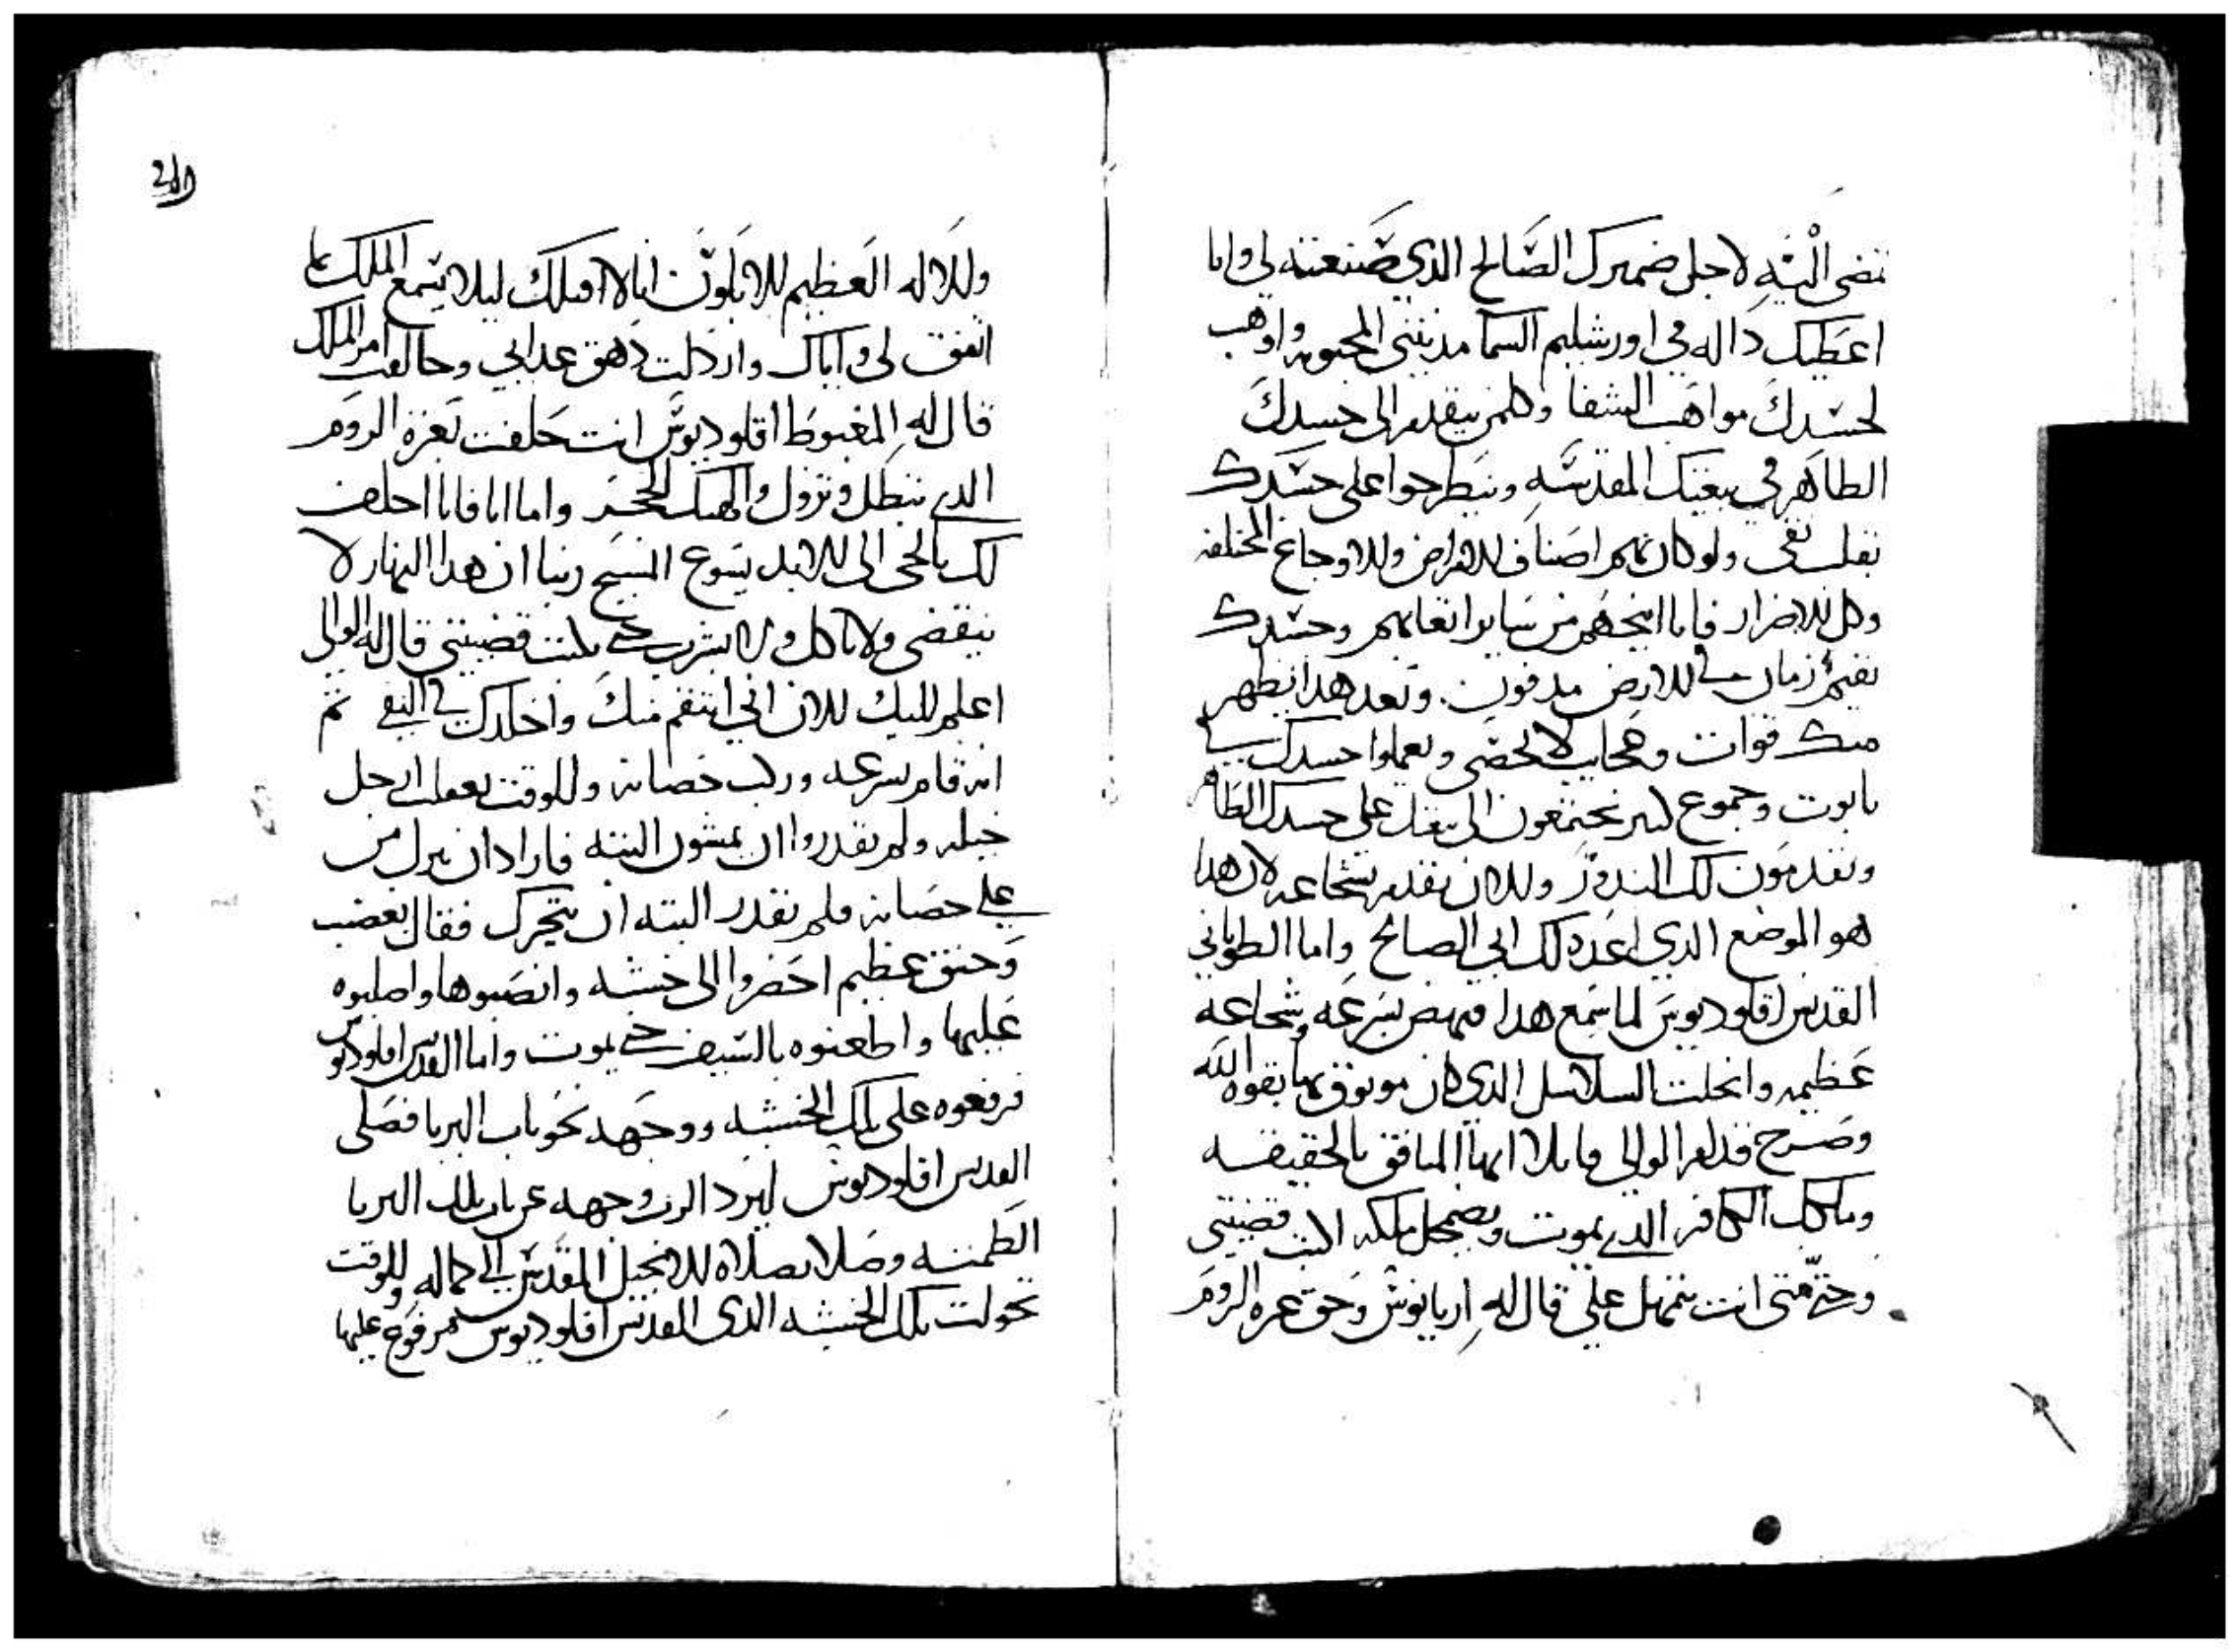 تمضى البته لاجل ضميرك الصالح الذي صنعته لي وانا
اعطيك داله في اورشليم السما مدينتي المحبوبه واوهب
لجسدك مواهب الشفا وكلمن يتقدم الى جسدك
الطاهر في بيعتك المقدسه وينطرحوا على جسدك
بقلب نقى ولو كان بهم اصناف الامراض والاوجاع المختلفه
وكل الاضرار فانا انجهم من ساير اتعابهم وجسدك
يقيم زمان في الارض مدفون. وبعد هدا يظهر
منك قوات وعجايب لا تحصى ويعملوا جسدك في
تابوت وجموع كتير يجتمعون الى بيعتك على جسدك الطاهر
ويقدمون لك الندور والان تقدم بشجاعه لان هدا
هو الموضع الدي اعده لك ابي الصالح واما الطوباني
القديس اقلوديوس لما سمع هدا فنهض بسرعه وشجاعه
عظيمه وانحلت السلاسل الدي كان موتوق بها بقوه الله
وصرخ قدام الوالى قايلا ايها المنافق بالحقيقه
وملكك الكافر الدي يموت ويضمحل ملكه اكتب قضيتي
وحتى متى انت تتمهل علي قال له اريانوس وحق عزه الروم
والاله العظيم الابلون انا لا اقتلك ليلا يسمع الملك بما
اتفق لى واياك وان دلت دهق عدابي وخالفت امر الملك
قال له المغبوط اقلوديوس انت حلفت بعزه الروم
الدي تبطل وتزول والهتك الحجر واما انا فانا احلف
لك بالحى الى الابد يسوع المسيح ربنا ان هدا النهار لا
ينقضى ولا تاكل ولا تشرب حتى تكتب قضيتي قال له الوالى
اعلم اليك الان اني انتقم منك واخلدك في النفي تم
انه قام بسرعه وركب حصانه وللوقت تعقلت ارجل
خيله ولم يقدروا ان يمشون البته فاراد ان ينزل من
على حصانه فلم يقدر البته ان يتحرك فقال بغضب
وحنق عظيم احضروا الى خشبه وانصبوها واصلبوه
عليها واطعنوه بالسيف حتى يموت واما القديس اقلوديوس
فرفعوه على تلك الخشبه ووجهه نحو باب البربا فصلى
القديس اقلوديوس ليرد الرب وجهه عن باب تلك البربا
الطمسه وصلا بصلاه الانجيل المقدس الى كماله وللوقت
تحولت تلك الخشبه الدى القديس اقلوديوس مرفوع عليها